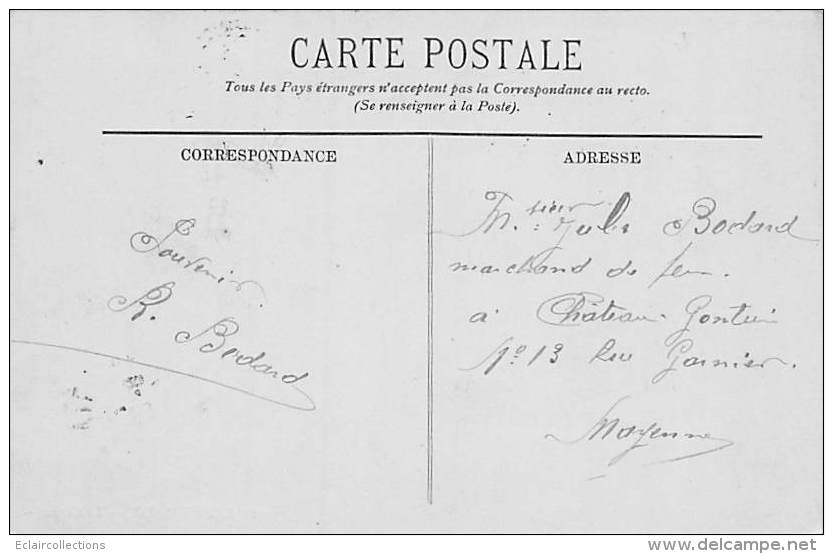 CARTE POSTALE
Tous les Pays étrangers n'acceptent pas la Correspondance au recto.
(Se renseigner à la Poste).
CORRESPONDANCE
ADRESSE
Souvenir.
R. Bodard
M.sieur Jules Bodard
marchand de
à Château-Gontier
No 13 Garnier.
Mayenne
Eclaircollections
www.delcampe.net